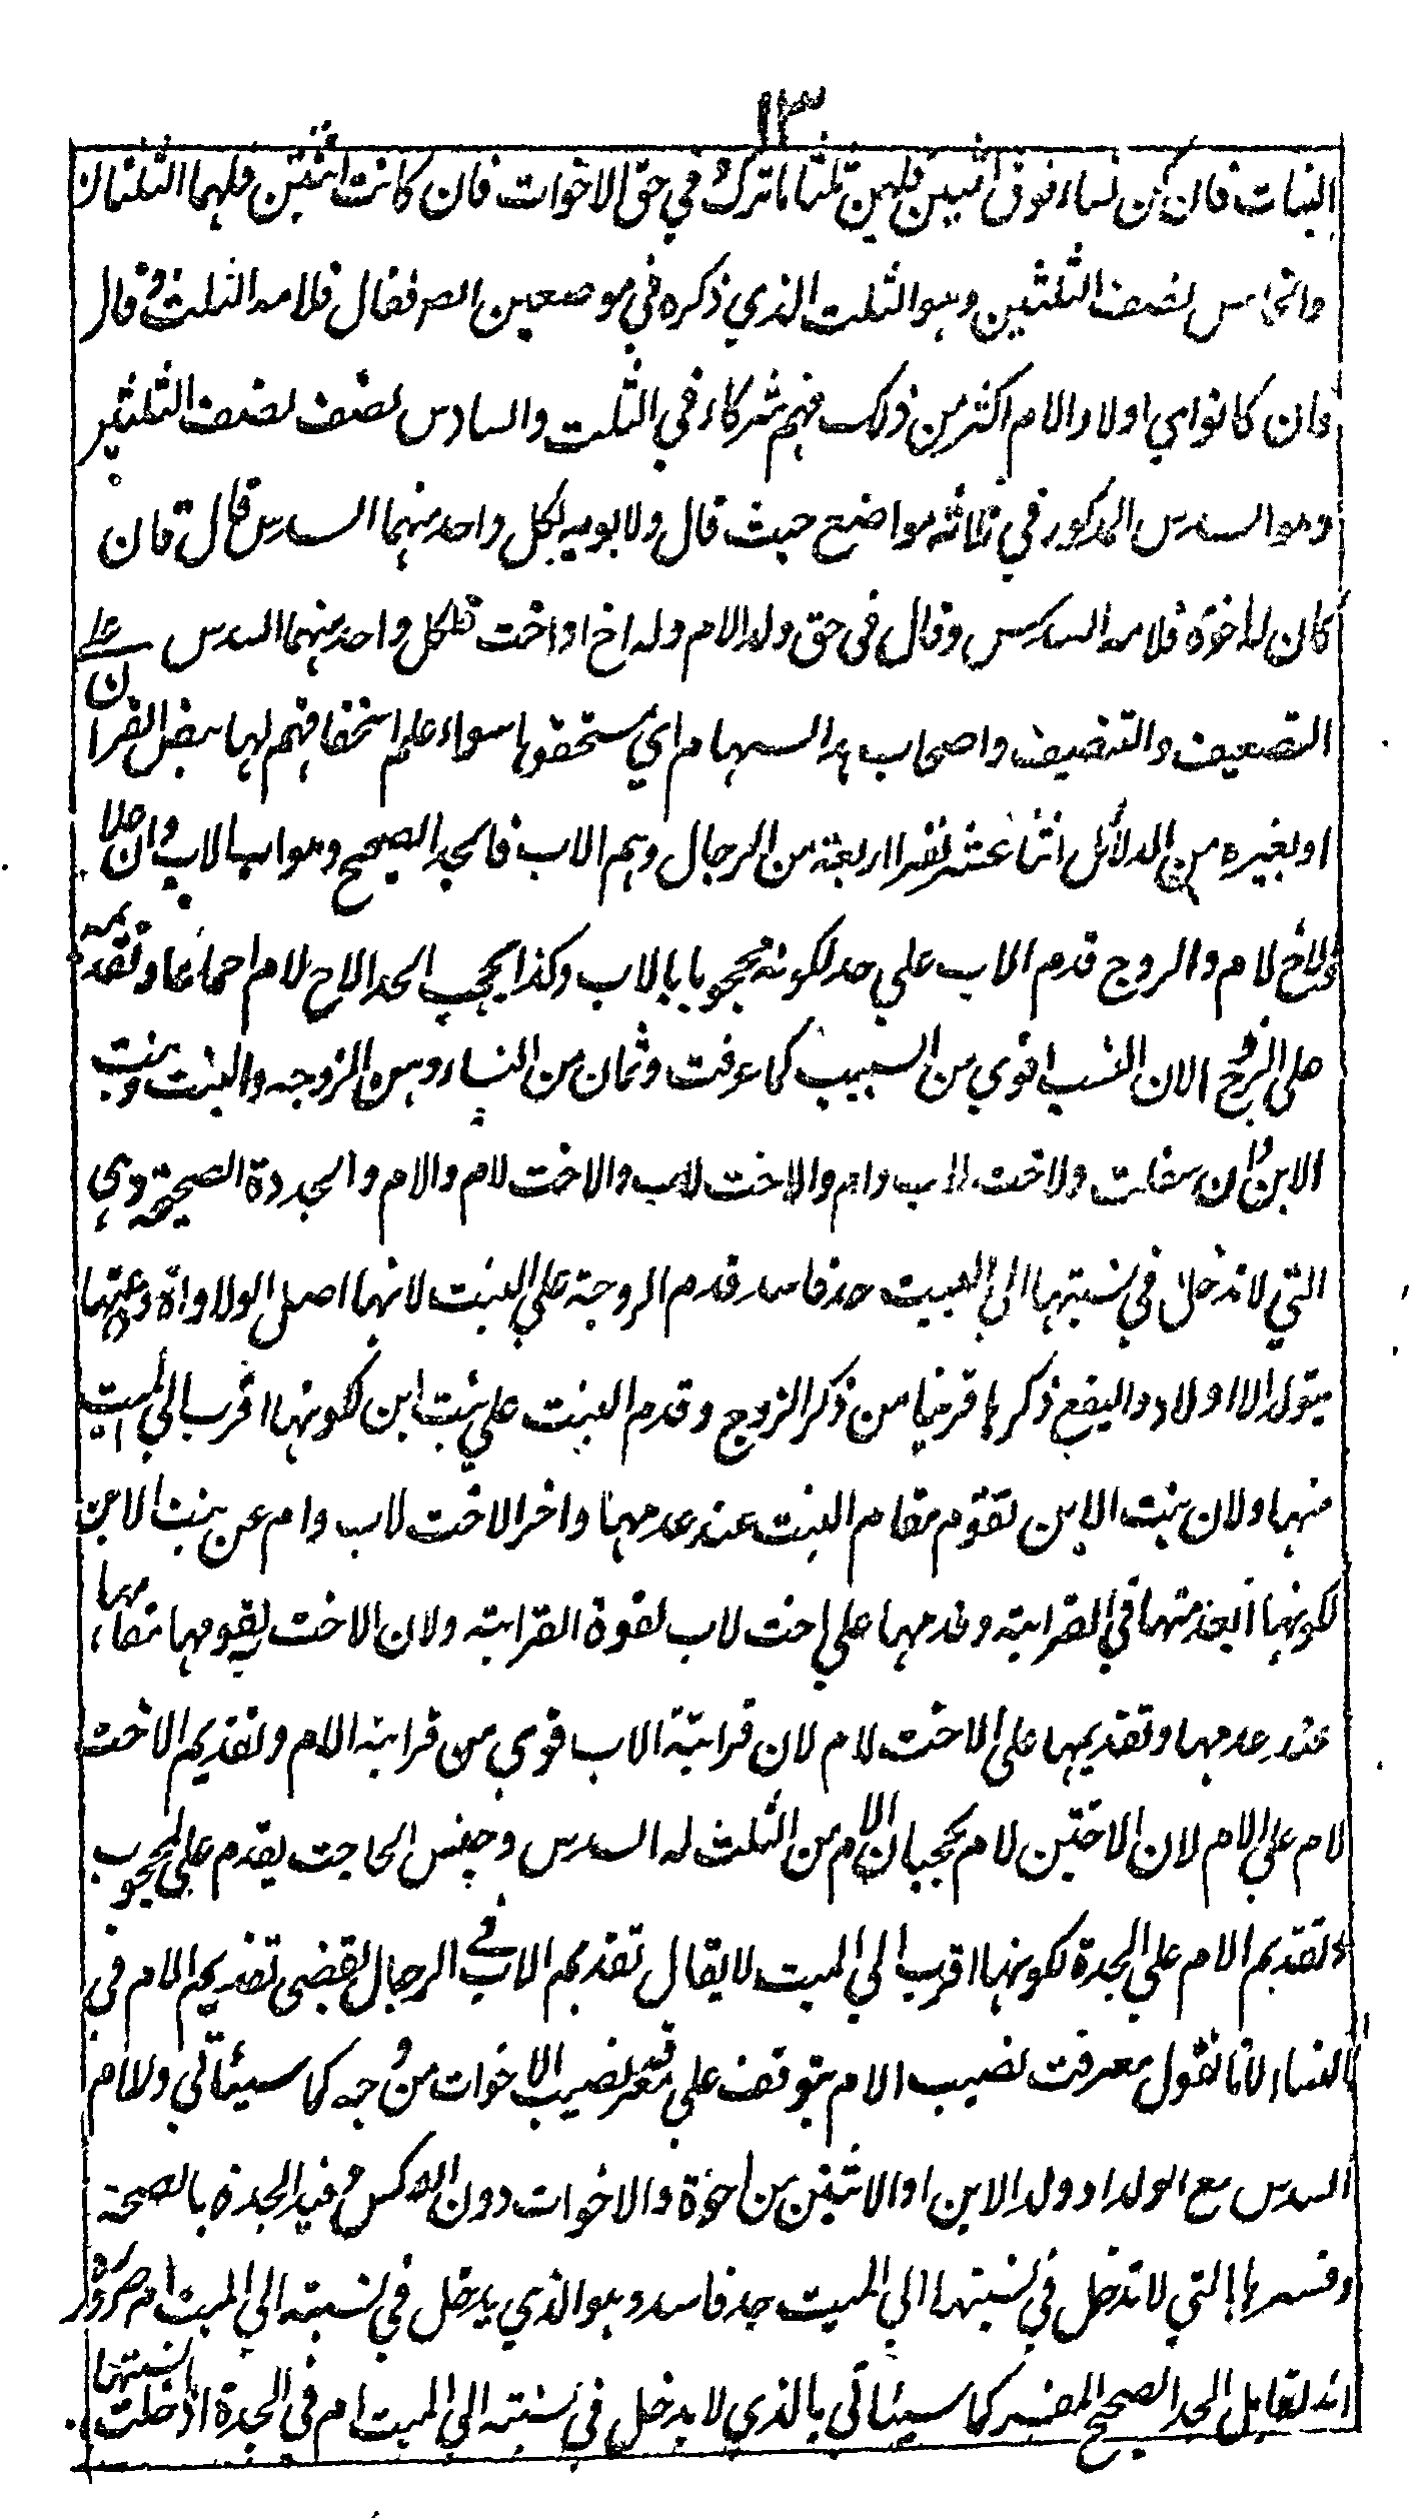 ١٣
البنات فان كن نساء فوق اثنين فلهن ثلثا ما ترك وفي حق الاخوات فان كانت اثنتين فلهما الثلثان
والخامس نصف الثلثين وهو الثلث الذي ذكره في موضعين فقال فلامه الثلث وقال
فان كانوا اي اولاد الام اكثر من ذلك فهم شركاء في الثلث والسادس نصف نصف الثلثين
وهو السدس المذكور في ثلاثه مواضع حيث قال ولابويه لكل واحد منهما السدس قال فان
كان له اخوة فلامه السدس وقال في حق ولد الام وله اخ او اخت فلكل واحد منهما السدس على
التضعيف والتنصيف واصحاب هذه السهام اي مستحقوها سواء علم استحقاقهم لها بنص القران
او بغيره من الدلائل اثنا عشر نفرا اربعة من الرجال وهم الاب فالجد الصحيح وهو اب الاب وان علا
ولاخ لام والزوج قدم الاب علي جد لكونه محجوبا بالاب وكذا يحجب الجد الاخ لام اجماعا وتقديمه
على الزوج الان النسب اقوي من السبب كما عرفت وثمان من النساء وهن الزوجه والبنت وبنت
الابن وان سفلت ولاخت لاب وام والاخت لاب والاخت لام والام والجددة الصحيحة وهي
التي لا تدخل في نسبتها الي الميت جد فاسد قدم الزوجة علي البنت لانها اصل الولاواة وعنها
يتولد الااولاد واليقع ذكرها قريبا من ذكر الزوج وقدم البنت علي بنت ابن لكونها اقرب الي الميت
منها ولان بنت الابن تقوم مقام البنت عند عدمها واخر الاخت لاب وام عن بنت الابن
لكونها ابعد منها في القرابة وقدمها علي اخت لاب لقوة القرابة ولان الاخت يقومها مقامها
عند عدمها وتقديمها على الاخت لام لان قرابة الاب قوي من قرابة الام وتقديم الاخت
لام علي الام لان الاختين لام يحجبان الام من الثلث له السدس وجنس الحاجت يقدم علي المحجوب
وتقديم الام علي الجدة لكونها اقرب الي الميت لا يقال تقديم الاب في الرجال يقضى تقديم الام في
النساء لانا نقول معرفت نصيب الام يتوقف علي معرفة نصيب الاخوات من وجه كما سيئاتي ولالام
السدس مع الولد او ولد الابن او الاثنين من اخوة والاخوات دون العكس وقيد الجدة بالصحة
وفسرها التي لا تدخل في نسبتها الي الميت جد فاسد وهو الذي يدخل في نسبته الي الميت ام ضرورة
انه تقابل الجد الصحيح المفسر كما سيئاتي بالذي لا يدخل في نسبته الي الميت ام في الجدة اذ دخلت نسبتها